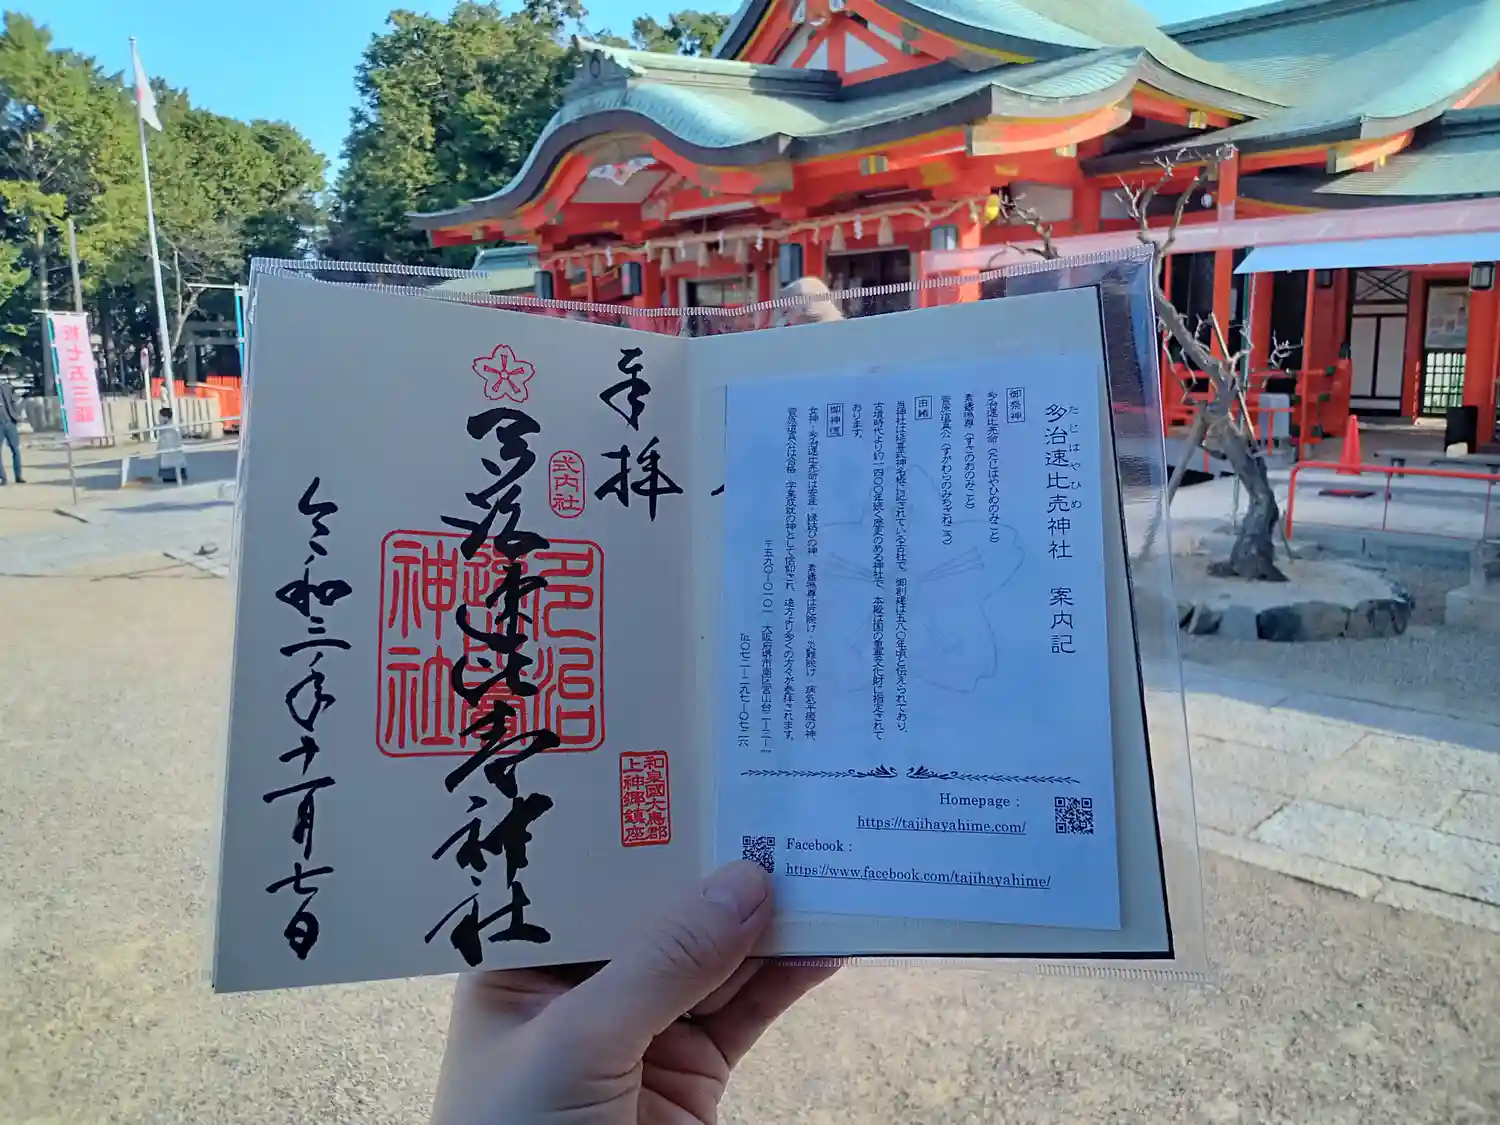 奉拝
式内社
多治速比売神社
多治速比賣神社
和泉國大鳥郡
上神郷鎮座
令和三年十一月七日
多治速比売神社 案内記
たじはやひめ
御祭神
多治速比売命(たじはやひめのみこと)
素盞嗚尊(すさのおのみこと)
菅原道真公(すがわらのみちざねこう)
由緒
当神社は延喜式神名帳に記されている古社で、御創建は五八〇年頃と伝えられており、
古墳時代より約一四〇〇年続く歴史のある神社で、本殿は国の重要文化財に指定されて
おります。
御神徳
女神・多治速比売命は安産・縁結びの神、素盞嗚尊は厄除け・災難除け・病気平癒の神、
菅原道真公は合格・学業成就の神として信仰され、遠方より多くの方々が参拝されます。
〒五九〇-〇一〇一 大阪府堺市南区宮山台二-三-一
℡〇七二-二九七-〇七二六
Homepage :
https://tajihayahime.com/
Facebook :
https://www.facebook.com/tajihayahime/
祝七五三詣